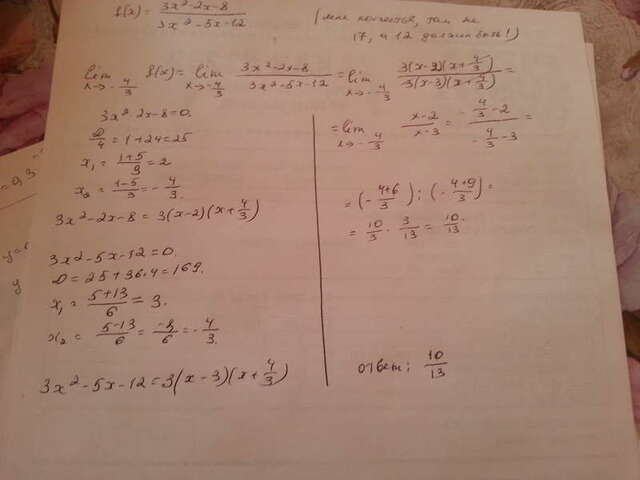 f(x) = \frac{3x²-2x-8}{3x²-5x-12} (мне кажется, там не
17, а 12 должно быть!)
lim_{x→-\frac{4}{3}} f(x) = lim_{x→-\frac{4}{3}} \frac{3x²-2x-8}{3x²-5x-12} = lim_{x→-\frac{4}{3}} \frac{3(x-3)(x+\frac{4}{3})}{3(x-3)(x+\frac{4}{3})} =
3x²-2x-8=0.
\frac{D}{4}=1+24=25
x₁=\frac{1+5}{3}=2
x₂=\frac{1-5}{3}=-\frac{4}{3}.
3x²-2x-8=3(x-2)(x+\frac{4}{3})
3x²-5x-12=0.
D=25+36·4=169.
x₁=\frac{5+13}{6}=3.
x₂=\frac{5-13}{6}=\frac{-8}{6}=-\frac{4}{3}.
3x²-5x-12=3(x-3)(x+\frac{4}{3})
=lim_{x→-\frac{4}{3}} \frac{x-2}{x-3}=\frac{-\frac{4}{3}-2}{-\frac{4}{3}-3}=
=(-\frac{4+6}{3}):(-\frac{4+9}{3})=
=\frac{10}{3}·\frac{3}{13}=\frac{10}{13}.
ответ: \frac{10}{13}
=0,3
y=
y